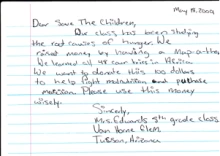 May 18, 2009
Dear Save The Children,
Our class has been studying
the root causes of hunger. We
raised money by having a Map-a-thon
We learned all 47 countries in Africa
We want to donate this 100 dollars
to help fight malnutrition and purchase
medicine. Please use this money
wisely.
Sincerely,
Mrs. Edwards 5th grade class
Van Horne Elem.
Tucson, Arizona